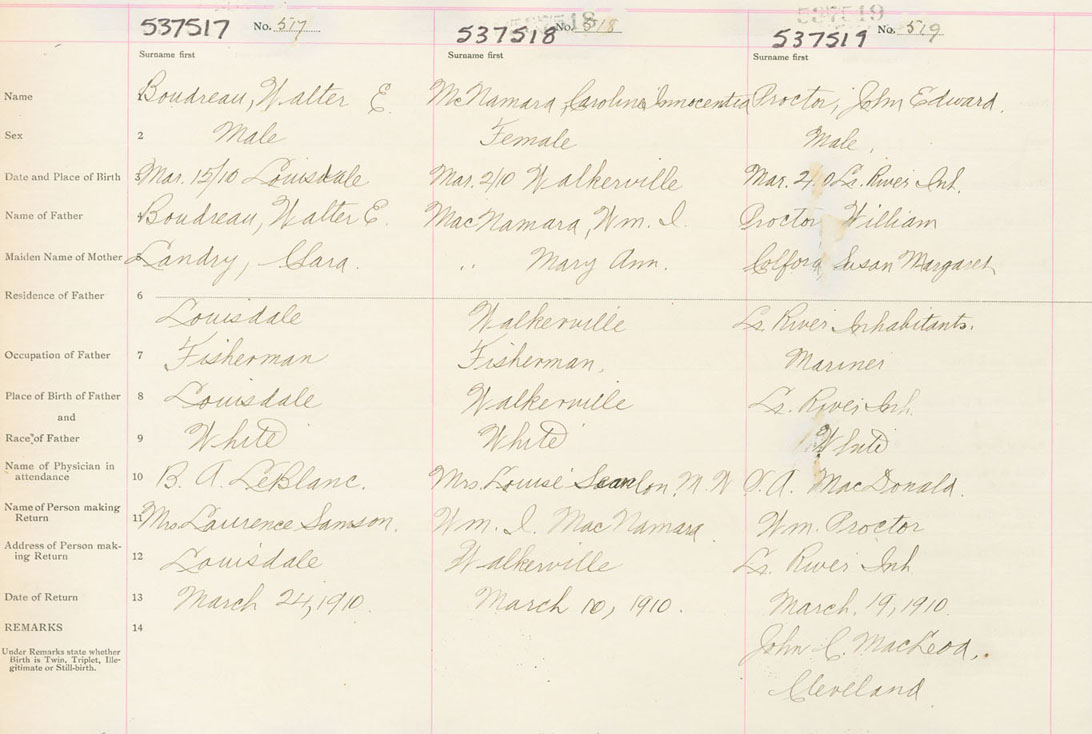 537517 No. 517 537518 No. 518 537519 537519 No. 519
Surname first Surname first Surname first
Name 1 Boudreau, Walter E. McNamara, Caroline Innocentia Proctor, John Edward.
Sex 2 Male Female Male.
Date and Place of Birth 3 Mar. 15/10 Louisdale Mar. 2/10 Walkerville Mar. 2 0 Ls. River Inh.
Name of Father 4 Boudreau, Walter E. MacNamara, Wm. I. Proctor William
Maiden Name of Mother 5 Landry, Clara. " Mary Ann. Colford, Susan Margaret
Residence of Father 6
Louisdale Walkerville Ls. River Inhabitants.
Occupation of Father 7 Fisherman Fisherman, Mariner
Place of Birth of Father 8 Louisdale Walkerville Ls. River Inh.
and
Race of Father 9 White White White
Name of Physician in
attendance 10 B. A. LeBlanc. Mrs. Louise Scanlon. M. W. A. MacDonald.
Name of Person making
Return 11 Mrs Laurence Samson. Wm. I. MacNamara Wm. Proctor
Address of Person mak-
ing Return 12 Louisdale Walkerville Ls. River Inh
Date of Return 13 March 24, 1910. March 10, 1910. March. 19, 1910.
REMARKS 14
John C. MacLeod,
Under Remarks state whether
Birth is Twin, Triplet, Ille-
gitimate or Still-birth.
Cleveland